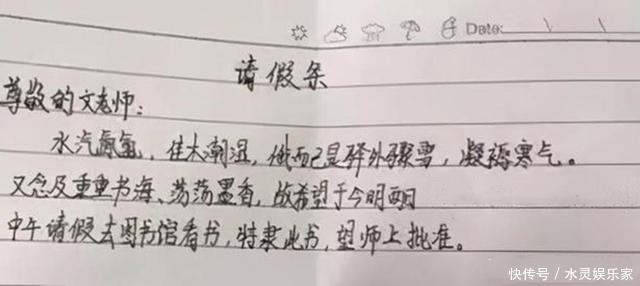 Date: \ \
请假条
尊敬的文老师:
水汽氤氲,佳木潮湿,俄而已是驿外骤雪,凝稿寒气。
又念及重重书海、荡荡墨香,故希望于今明两日
中午请假去图书馆看书,特隶此书,望师上批准。
快传号 / 水灵娱乐家